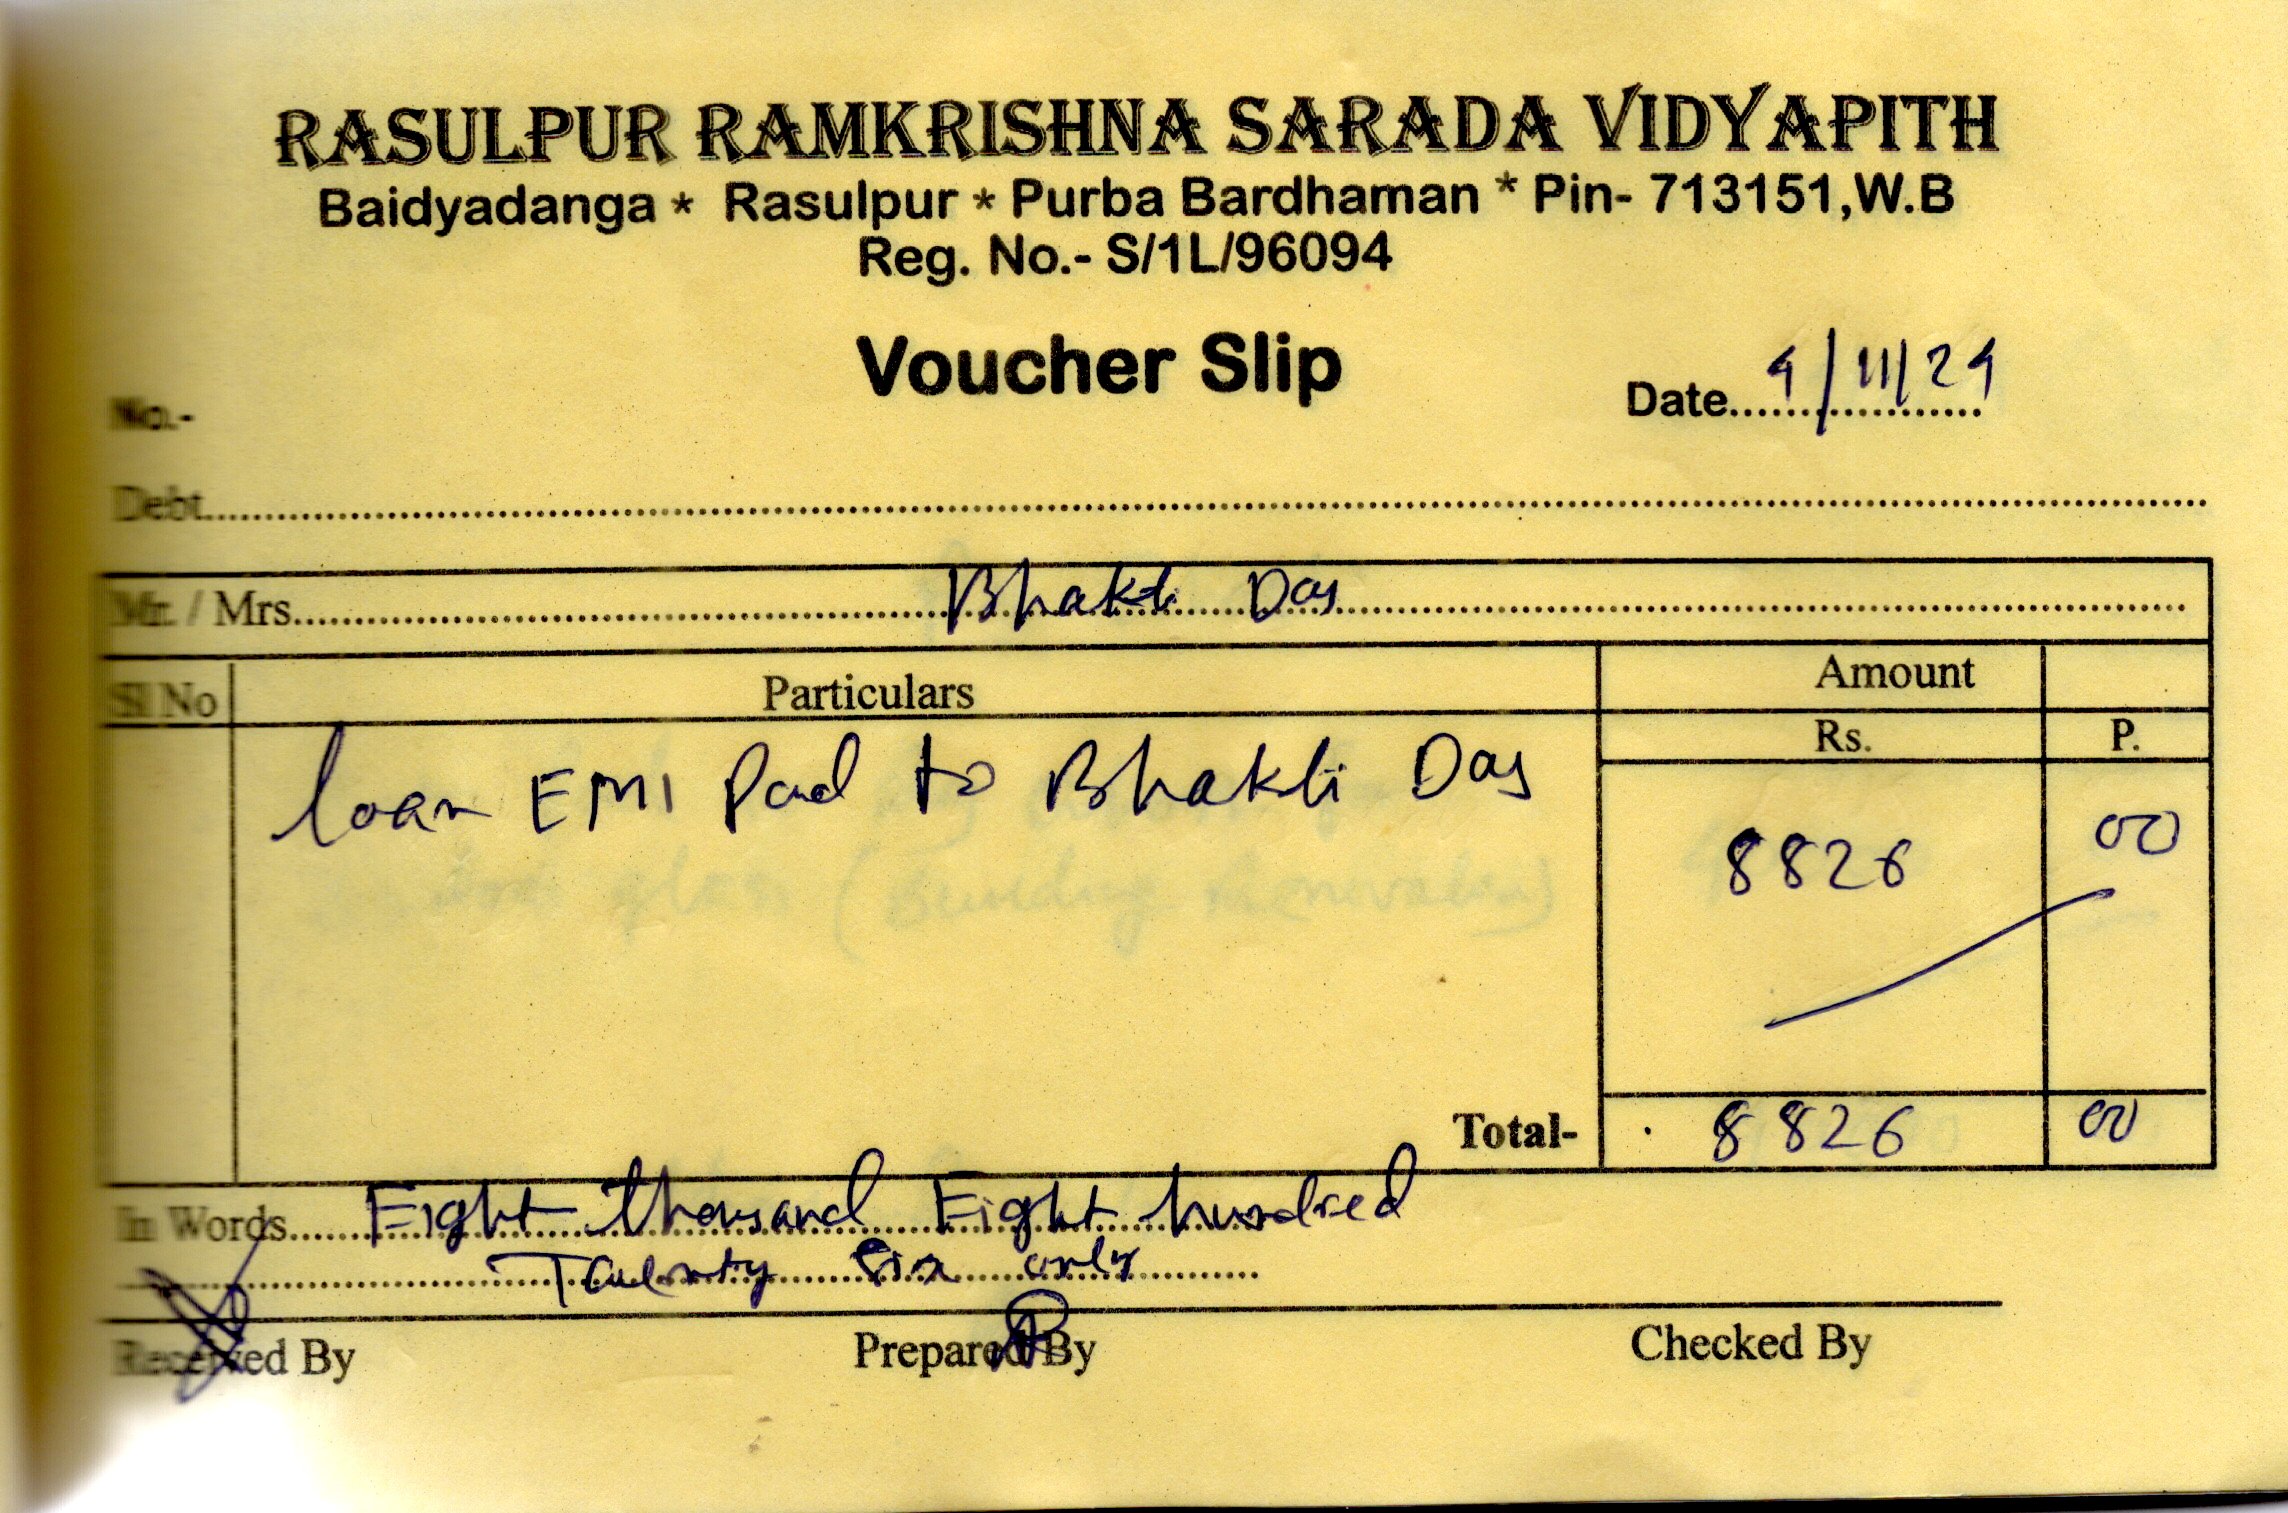 RASULPUR RAMKRISHNA SARADA VIDYAPITH
Baidyadanga * Rasulpur * Purba Bardhaman * Pin- 713151,W.B
Reg. No.- S/1L/96094
Voucher Slip
No.-
Date 4/11/24
Debt
Mr. / Mrs. Bhakti Das
Sl No Particulars Amount
Rs. P.
loan EMI Paid to Bhakti Das
8826 00
Total- 8826 00
In Words Eight thousand Eight hundred
Twenty Six only
Received By Prepared By Checked By